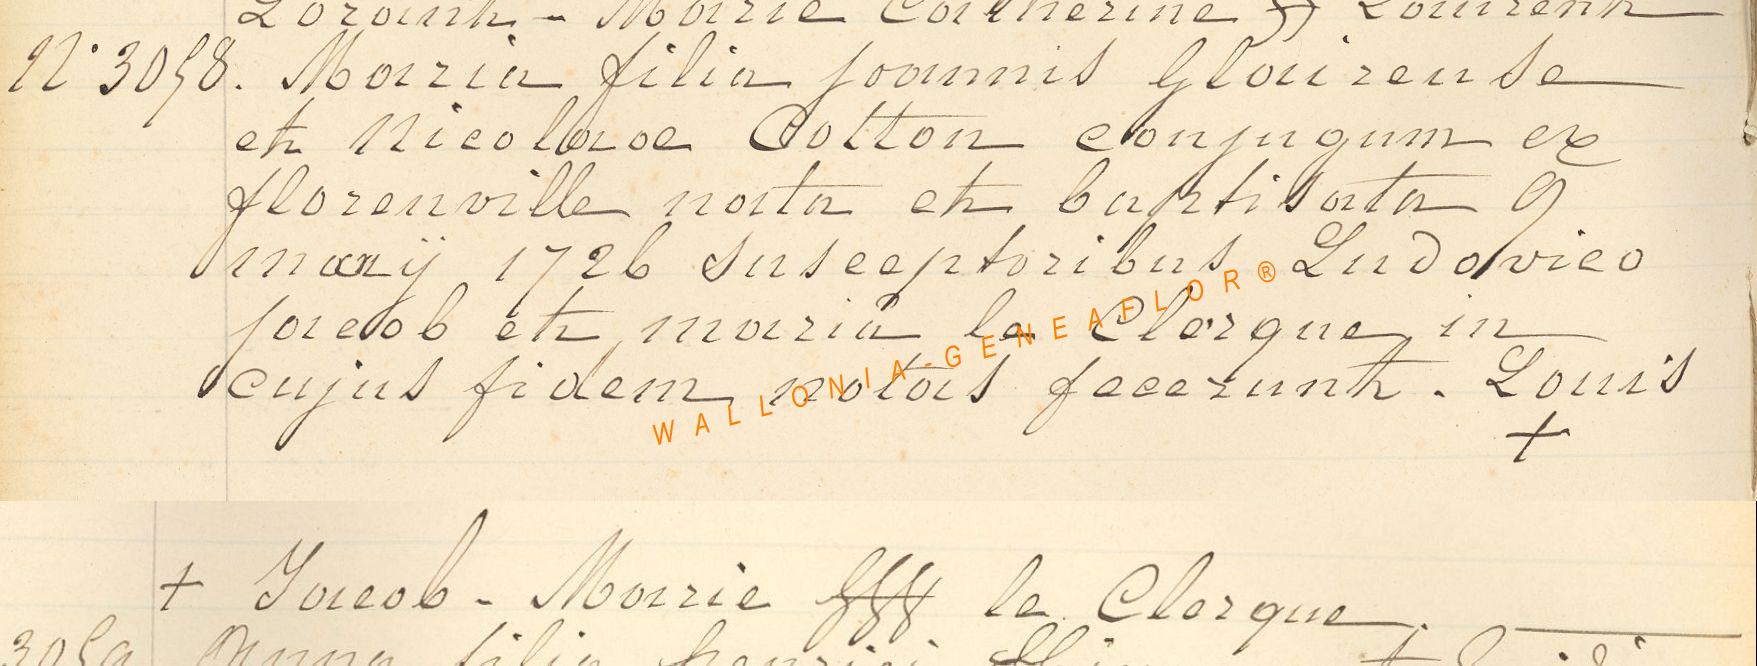 Lorant - Marie Catherine Laurent
N° 3058. Maria filia joannis Glaireuse
et Nicolaoe Cotton conjugum ex
florenville nata et baptisata 9
maÿ 1726 susceptoribus Ludovico
jacob et mariâ le Clerque in
cujus fidem notas fecerunt. Louis
+
WALLONIA-GENEAFLOR®
+ Jacob - Marie le Clerque.
3059 Anna filia henrici